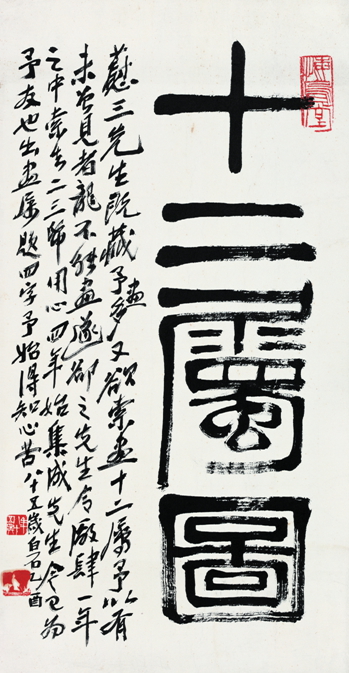 十二屬圖
三先生既藏予畫多又欲索畫十二屬予以有
未曾見者龍不能畫遂卻之先生令廠肆一年
之中索二三幅用心四年始集成先生今已為
予友也出畫屬題四字予始得知心苦八十五歲白石乙酉